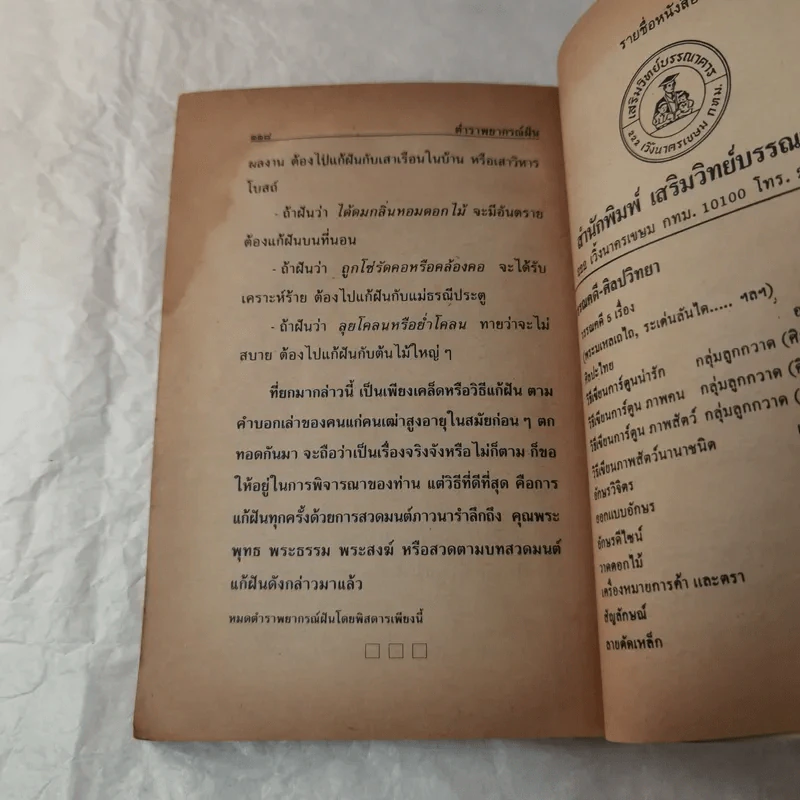 ๒๑๘ ตำราพยากรณ์ฝัน
ผลงาน ต้องไปแก้ฝันกับเสาเรือนในบ้าน หรือเสาวิหาร
โบสถ์
- ถ้าฝันว่า ได้ดมกลิ่นหอมดอกไม้ จะมีอันตราย
ต้องแก้ฝันบนที่นอน
- ถ้าฝันว่า ถูกโซ่รัดคอหรือคล้องคอ จะได้รับ
เคราะห์ร้าย ต้องไปแก้ฝันกับแม่ธรณีประตู
- ถ้าฝันว่า ลุยโคลนหรือย่ำโคลน ทายว่าจะไม่
สบาย ต้องไปแก้ฝันกับต้นไม้ใหญ่ ๆ
ที่ยกมากล่าวนี้ เป็นเพียงเคล็ดหรือวิธีแก้ฝัน ตาม
คำบอกเล่าของคนแก่คนเฒ่าสูงอายุในสมัยก่อน ๆ ตก
ทอดกันมา จะถือว่าเป็นเรื่องจริงจังหรือไม่ก็ตาม ก็ขอ
ให้อยู่ในการพิจารณาของท่าน แต่วิธีที่ดีที่สุด คือการ
แก้ฝันทุกครั้งด้วยการสวดมนต์ภาวนารำลึกถึง คุณพระ
พุทธ พระธรรม พระสงฆ์ หรือสวดตามบทสวดมนต์
แก้ฝันดังกล่าวมาแล้ว
หมดตำราพยากรณ์ฝันโดยพิสดารเพียงนี้
รายชื่อหนังสือ
เสริมวิทย์บรรณาคาร
๒๒๒ เวิ้งนาครเขษม กทม.
สำนักพิมพ์ เสริมวิทย์บรรณ
๒๒๒ เวิ้งนาครเขษม กทม. 10100 โทร.
วรรณคดี-ศิลปวิทยา
วรรณคดี ๕ เรื่อง
(พระมเหลเถไถ, ระเด่นลันได..... ฯลฯ)
ศิลปะไทย
วิธีเขียนการ์ตูนน่ารัก กลุ่มลูกกวาด
วิธีเขียนการ์ตูน ภาพคน กลุ่มลูกกวาด
วิธีเขียนการ์ตูน ภาพสัตว์ กลุ่มลูกกวาด
วิธีเขียนภาพสัตว์นานาชนิด
อักษรวิจิตร
ออกแบบอักษร
อักษรดีไซน์
วาดดอกไม้
เครื่องหมายการค้า และตรา
สัญลักษณ์
ลายดัดเหล็ก